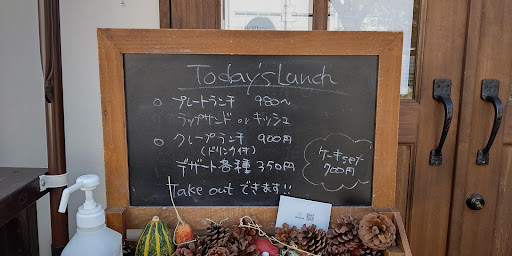 Today's Lunch
○ プレートランチ 980〜
ラップサンド or キッシュ
○ クレープランチ 900円
(ドリンク付)
デザート各種 350円
ケーキset
700円
Take out できます!!